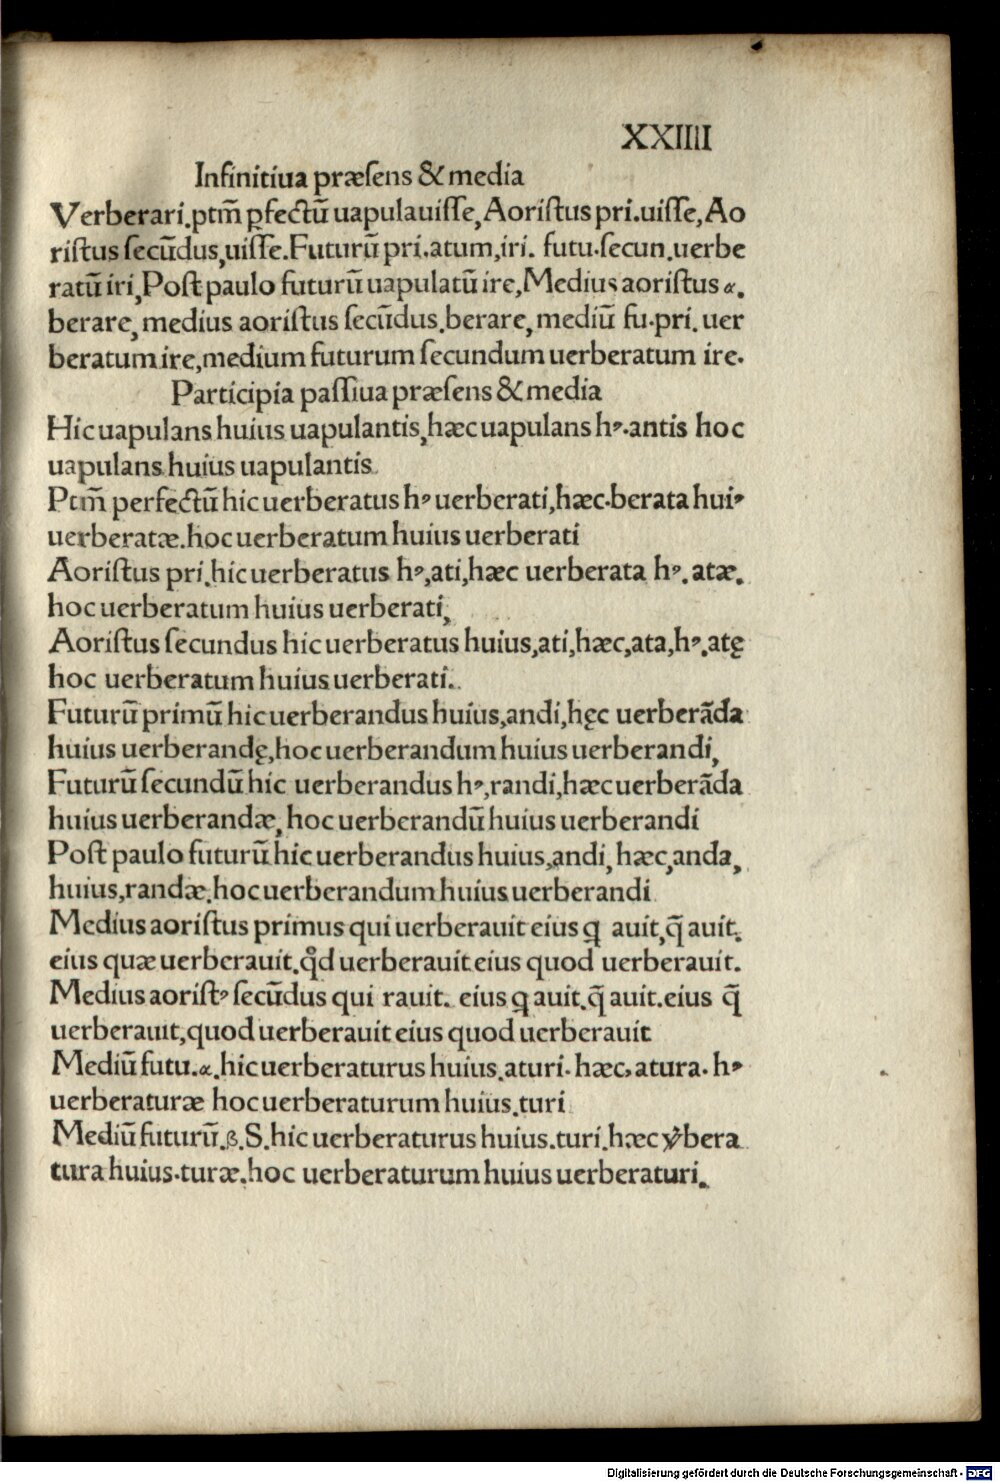 XXIIII
Infinitiua præſens & media
Verberari.ptm̄ ꝑfectū uapulauiſſe, Aoriſtus pri.uiſſe, Ao
riſtus ſecūdus,uiſſe.Futurū pri.atum,iri. futu.ſecun.uerbe
ratū iri, Poſt paulo futurū uapulatū ire, Medius aoriſtus α.
berare, medius aoriſtus ſecūdus.berare, mediū fu.pri. uer
beratum ire,medium futurum ſecundum uerberatum ire.
Participia paſſiua præſens & media
Hic uapulans huius uapulantis,hæc uapulans hꝰ.antis hoc
uapulans huius uapulantis.
Ptm̄ perfectū hic uerberatus hꝰ uerberati,hæc.berata huiꝰ
uerberatæ.hoc uerberatum huius uerberati
Aoriſtus pri.hic uerberatus hꝰ,ati,hæc uerberata hꝰ. atæ.
hoc uerberatum huius uerberati,
Aoriſtus ſecundus hic uerberatus huius,ati,hæc,ata,hꝰ.atę
hoc uerberatum huius uerberati.
Futurū primū hic uerberandus huius,andi,hęc uerberāda
huius uerberandę,hoc uerberandum huius uerberandi,
Futurū ſecundū hic uerberandus hꝰ,randi,hæc uerberāda
huius uerberandæ, hoc uerberandū huius uerberandi
Poſt paulo futurū hic uerberandus huius,andi, hæc,anda,
huius,randæ.hoc uerberandum huius uerberandi
Medius aoriſtus primus qui uerberauit eius ꝗ auit,q̄ auit.
eius quæ uerberauit.qͦd uerberauit eius quod uerberauit.
Medius aoriſtꝰ ſecūdus qui rauit. eius ꝗ auit.q̄ auit.eius q̄
uerberauit,quod uerberauit eius quod uerberauit
Mediū futu.α.hic uerberaturus huius.aturi. hæc,atura. hꝰ
uerberaturæ hoc uerberaturum huius.turi
Mediū futurū.β.S.hic uerberaturus huius.turi.hæc ỽ̓bera
tura huius.turæ.hoc uerberaturum huius uerberaturi.
Digitalisierung gefördert durch die Deutsche Forschungsgemeinschaft - DFG